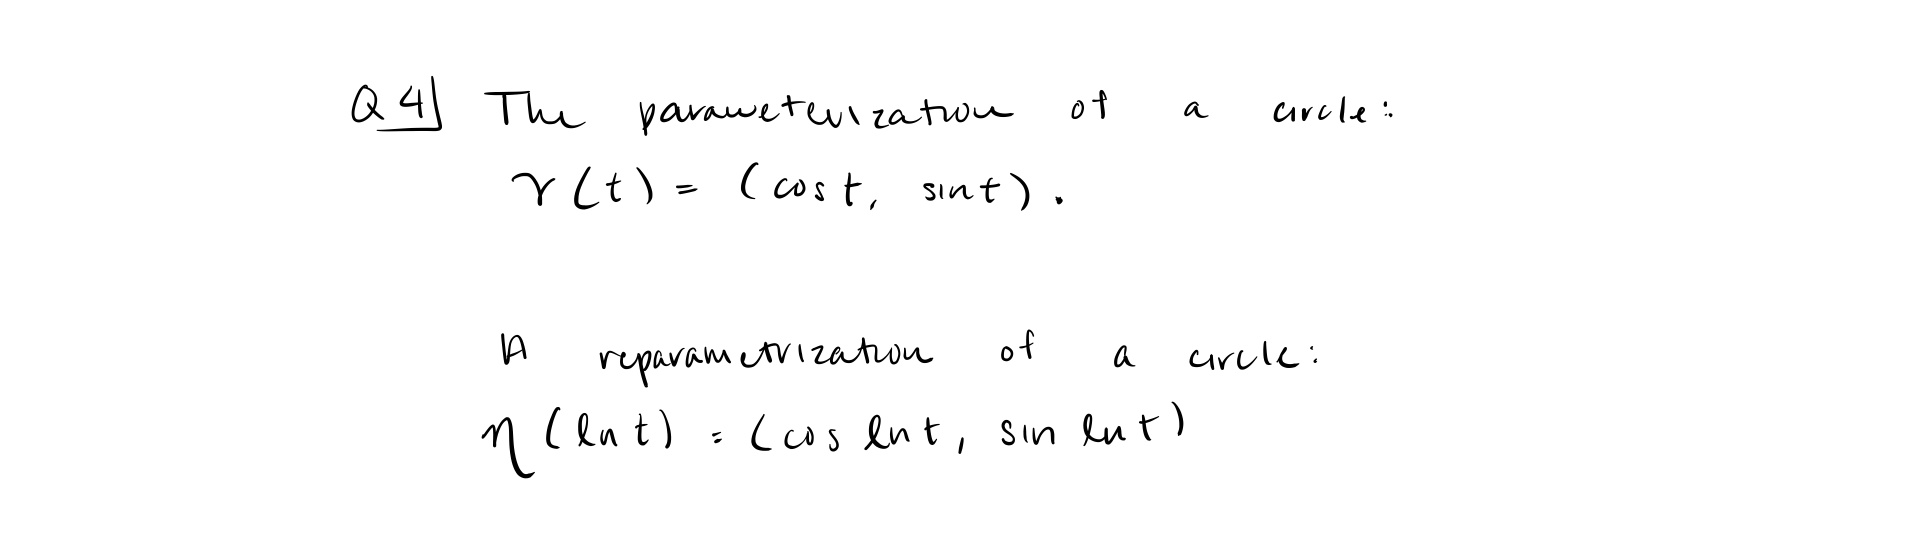 Q4] The parameterization of a circle:
γ(t) = (cos t, sin t).
A reparametrization of a circle:
η(ln t) = (cos ln t, sin ln t)